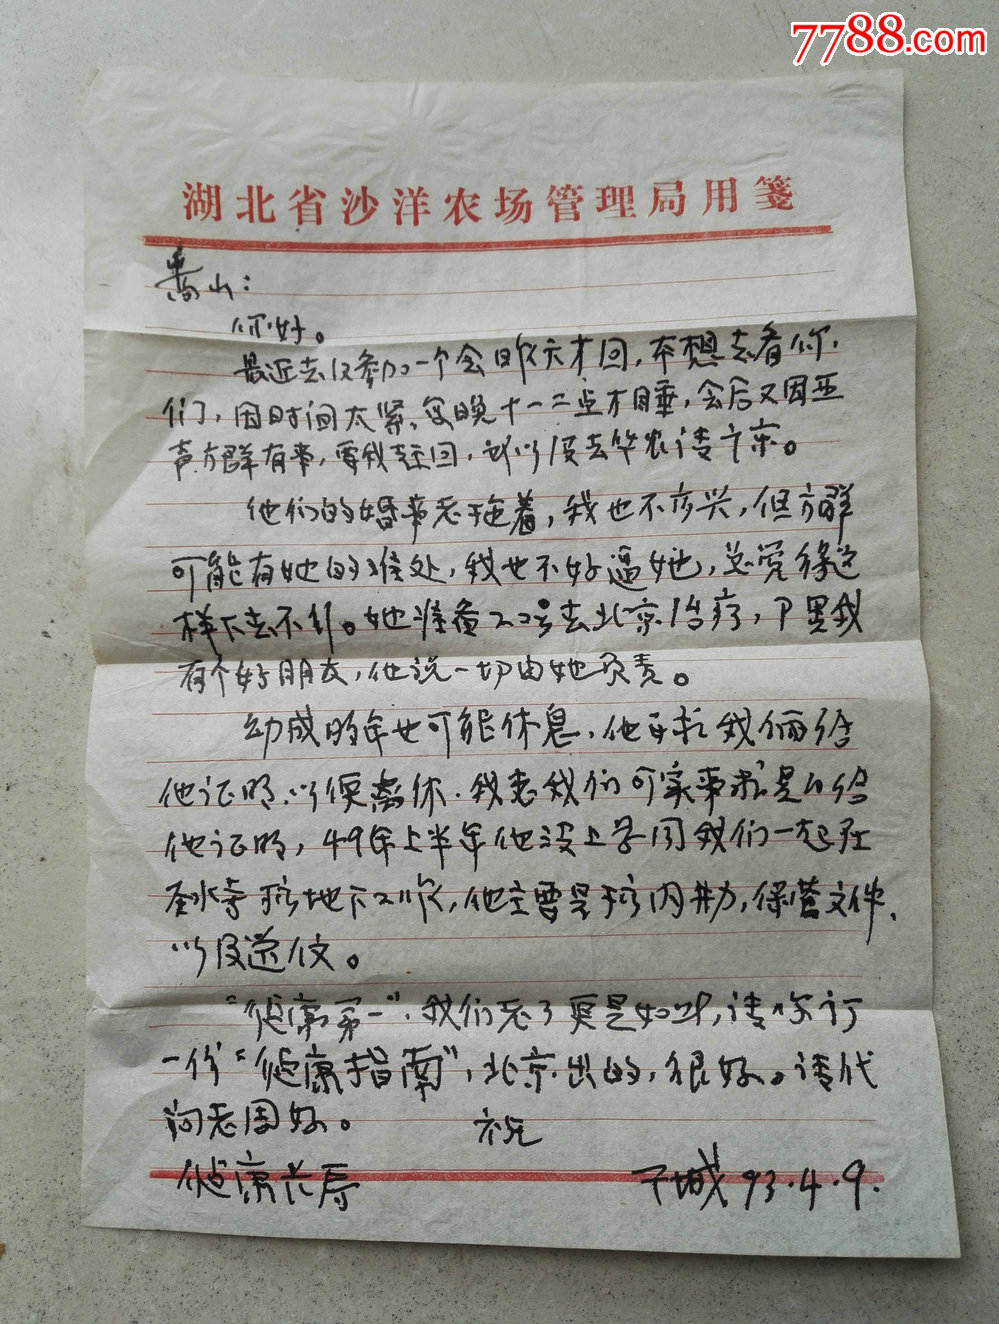 7788.com
湖北省沙洋农场管理局用笺
嵩山：
你好。
最近去汉参加一个会昨天才回，本想去看你
们，因时间太紧，每晚十一二点才睡，会后又因亚
声、方群有事，要我赶回，所以没去华农请方京。
他们的婚事老拖着，我也不高兴，但方群
可能有她的难处，我也不好逼她，总觉得这
样下去不行。她准备22号去北京治疗，那里我
有个好朋友，他说一切由她负责。
幼成明年也可能休息，他要求我俩给
他证明，以便离休。我意我们可实事求是的给
他证明，49年上半年他没上学同我们一起在
搞地下工作，他主要是搞内勤，保管文件、
以及送信。
“健康第一”，我们老了更是如此，请你订
一份“健康指南”，北京出的，很好。请代
问老周好。 祝
健康长寿 子城 93.4.9.